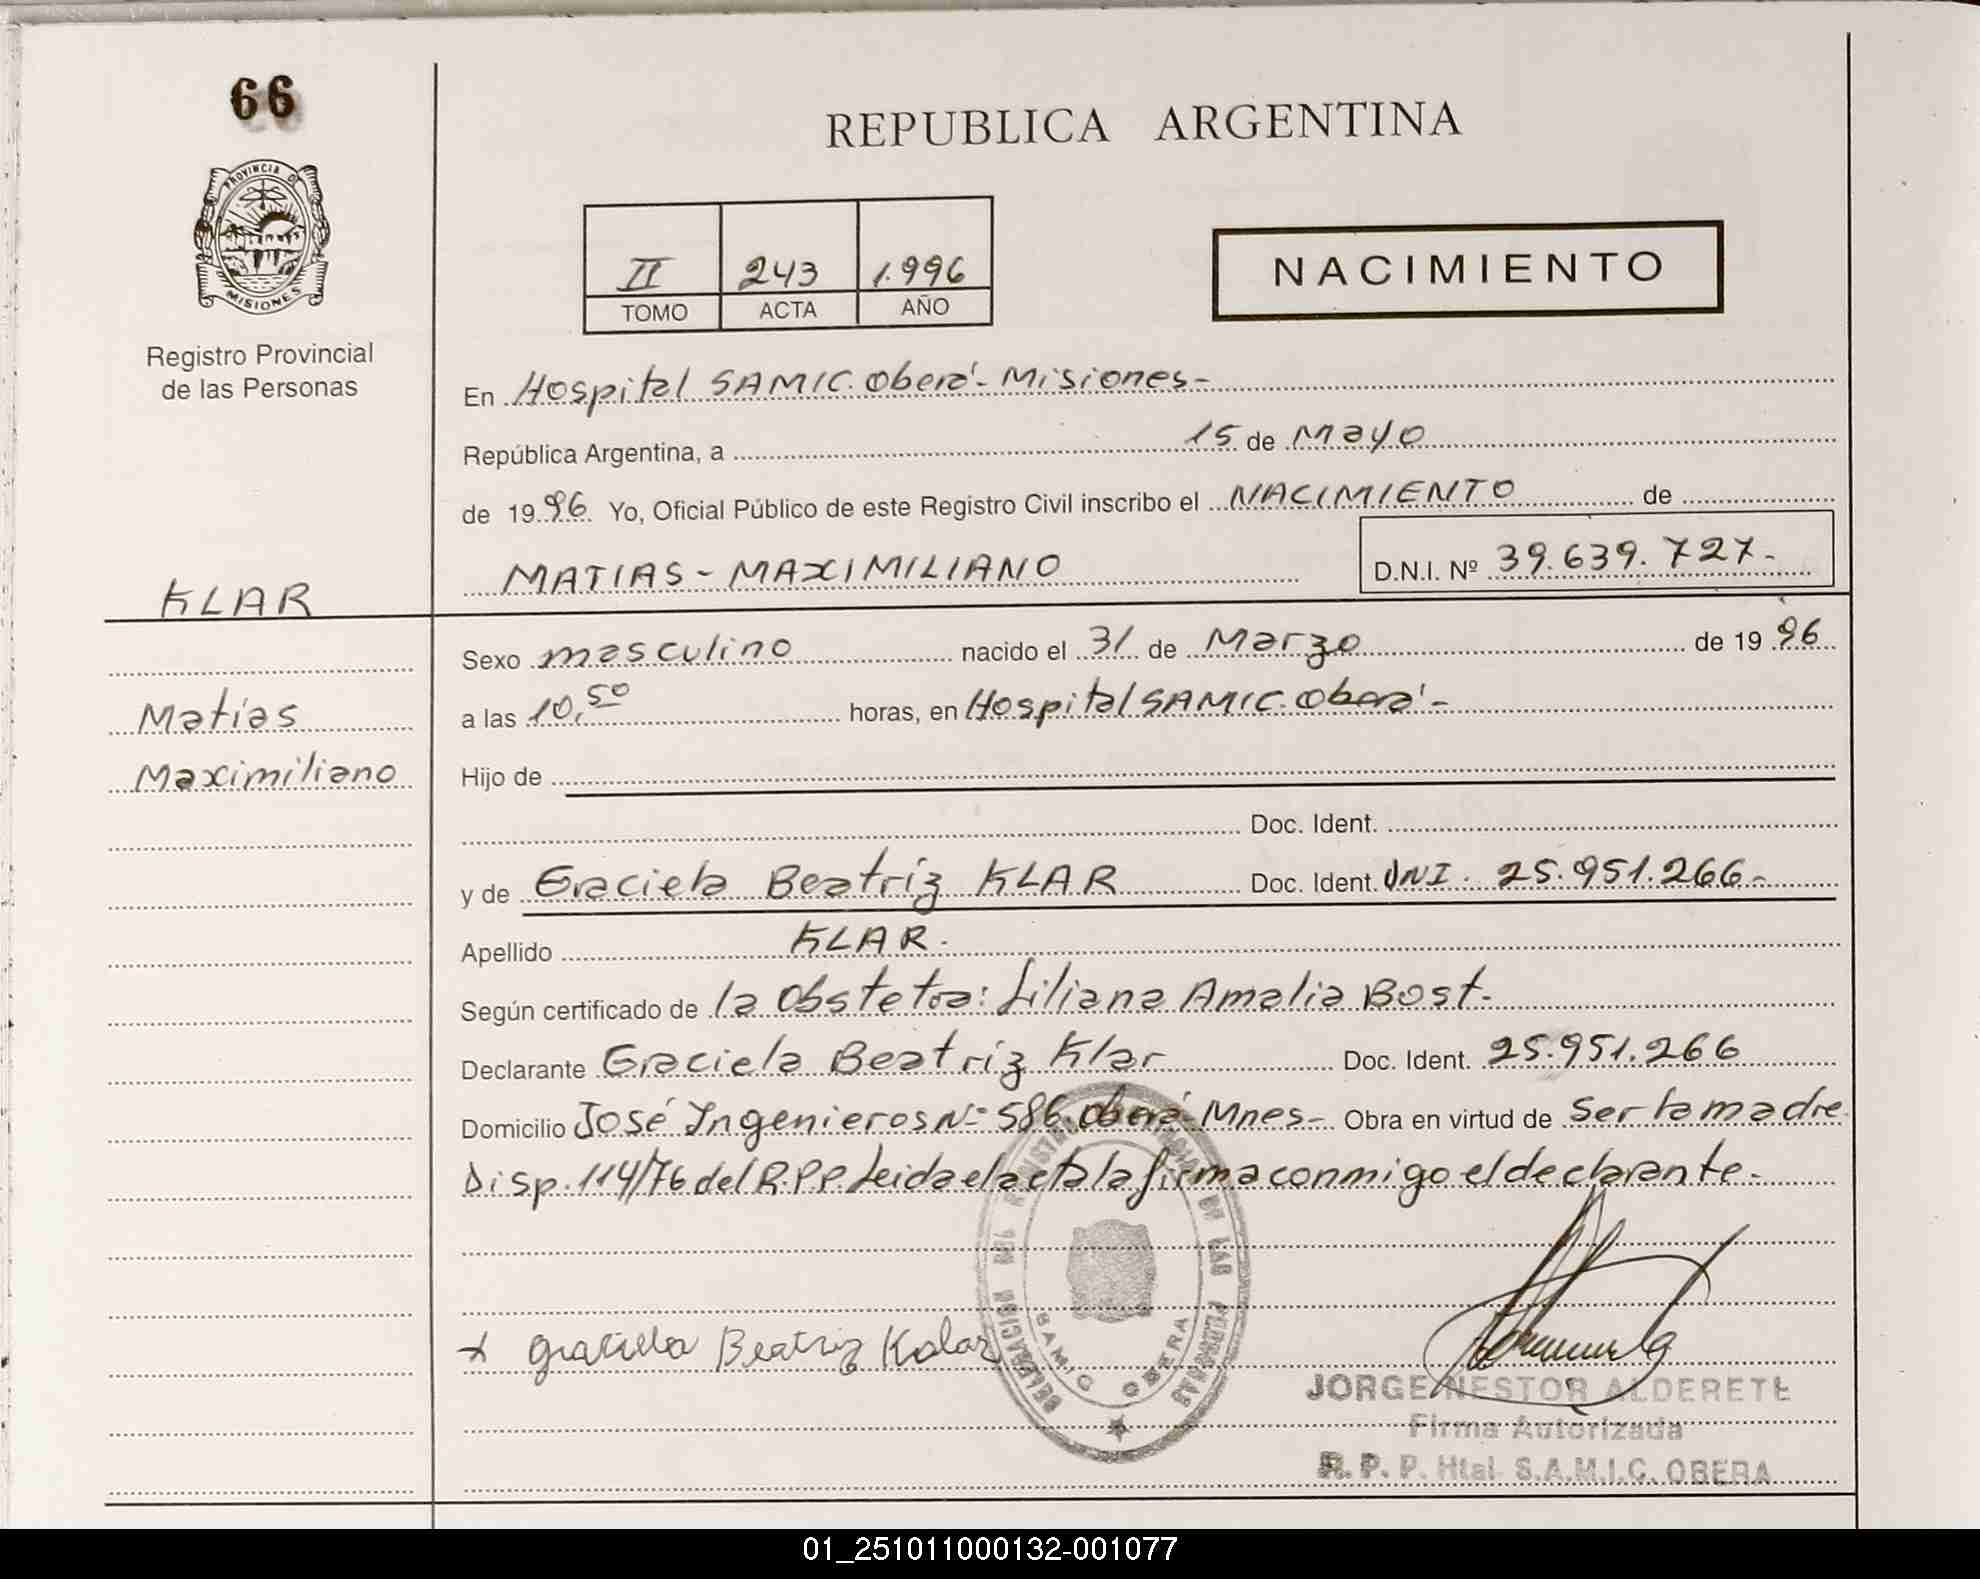 66
REPUBLICA ARGENTINA
PROVINCIA D
MISIONES
II 243 1.996
TOMO ACTA AÑO
NACIMIENTO
Registro Provincial
de las Personas
En Hospital SAMIC. Oberá - Misiones -
República Argentina, a 15 de Mayo
de 1996 Yo, Oficial Público de este Registro Civil inscribo el NACIMIENTO de
MATIAS - MAXIMILIANO D.N.I. Nº 39.639.727-
KLAR
Matías
Maximiliano
Sexo masculino nacido el 31 de Marzo de 1996
a las 10,50 horas, en Hospital SAMIC. Oberá -
Hijo de
Doc. Ident.
y de Graciela Beatríz KLAR Doc. Ident. DNI. 25.951.266-
Apellido KLAR.
Según certificado de la Obstetra: Liliana Amalia Bost-
Declarante Graciela Beatríz Klar Doc. Ident. 25.951.266
Domicilio José Ingenieros Nº 586. Oberá - Mnes - Obra en virtud de Ser la madre
Disp. 114/76 del R.P.P. Leida el acta la firma conmigo el declarante -
x Graciela Beatriz Kalar
DELEGACION DEL REGISTRO PROVINCIAL DE LAS PERSONAS
SAMIC OBERA
JORGE NESTOR ALDERETE
Firma Autorizada
R. P. P. Htal. S.A.M.I.C. OBERA
01_251011000132-001077